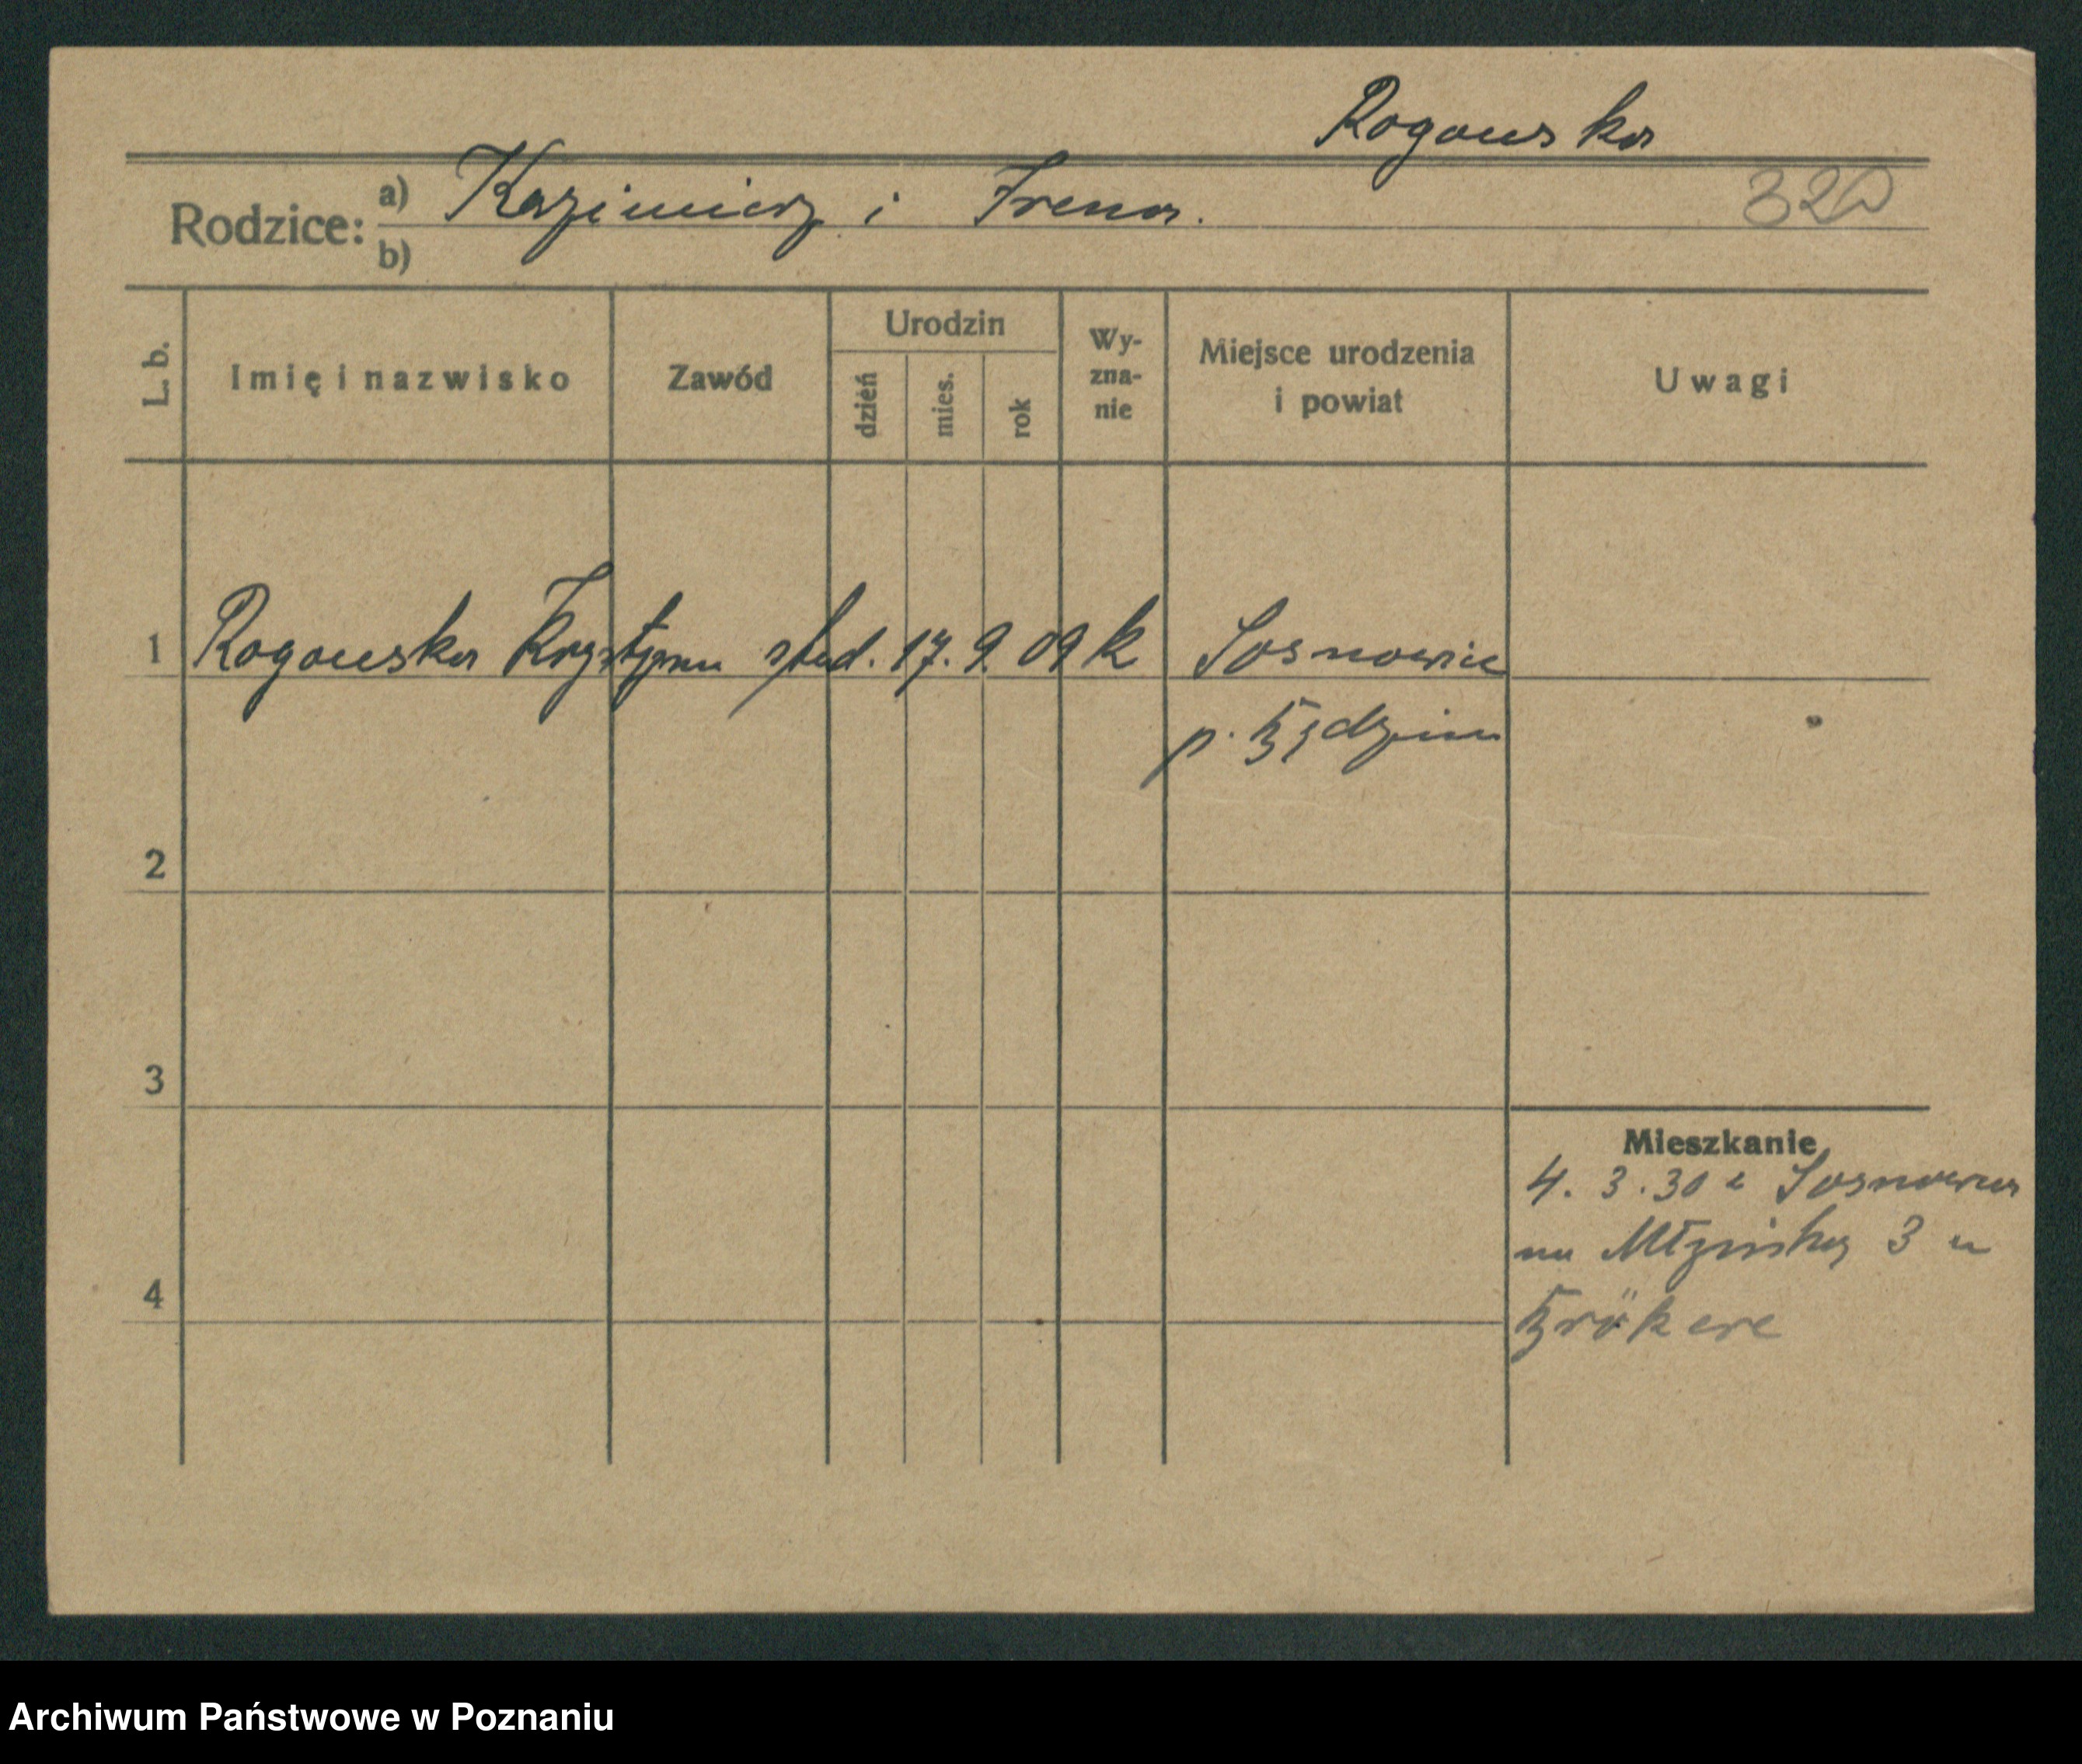 Rogowska
Rodzice: a) Kazimierz i Irena. 320
b)
L. b. Imię i nazwisko Zawód Urodzin dzień mies. rok Wy-zna-nie Miejsce urodzenia i powiat Uwagi
1 Rogowska Krystyna stud. 17. 9. 09 k Sosnowiec
p. Będzin
2
3
Mieszkanie
4. 3. 30 z Sosnowca
na Młyńską 3 u
4
Brökere
Archiwum Państwowe w Poznaniu